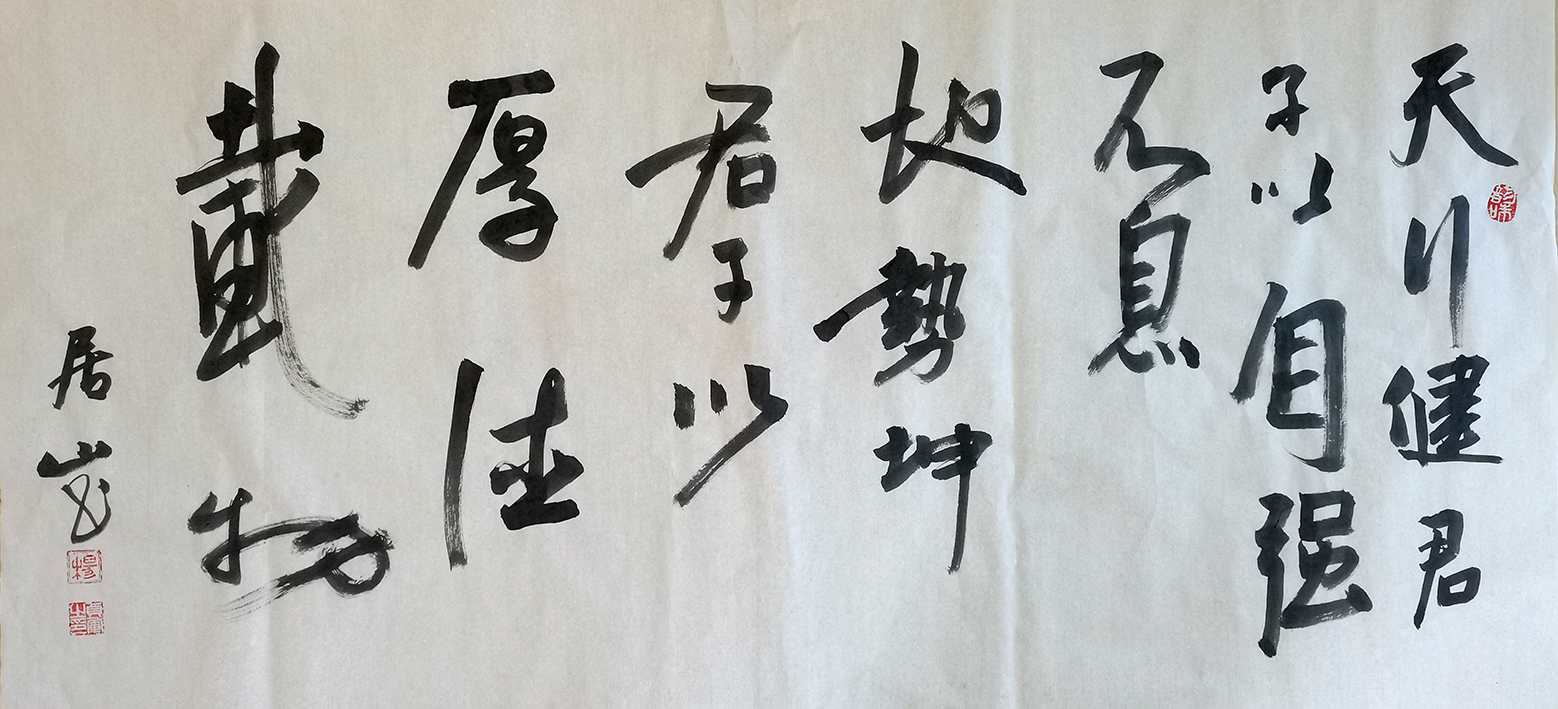 天行健君
子以自强
不息
地勢坤
君子以
厚德
載物
居